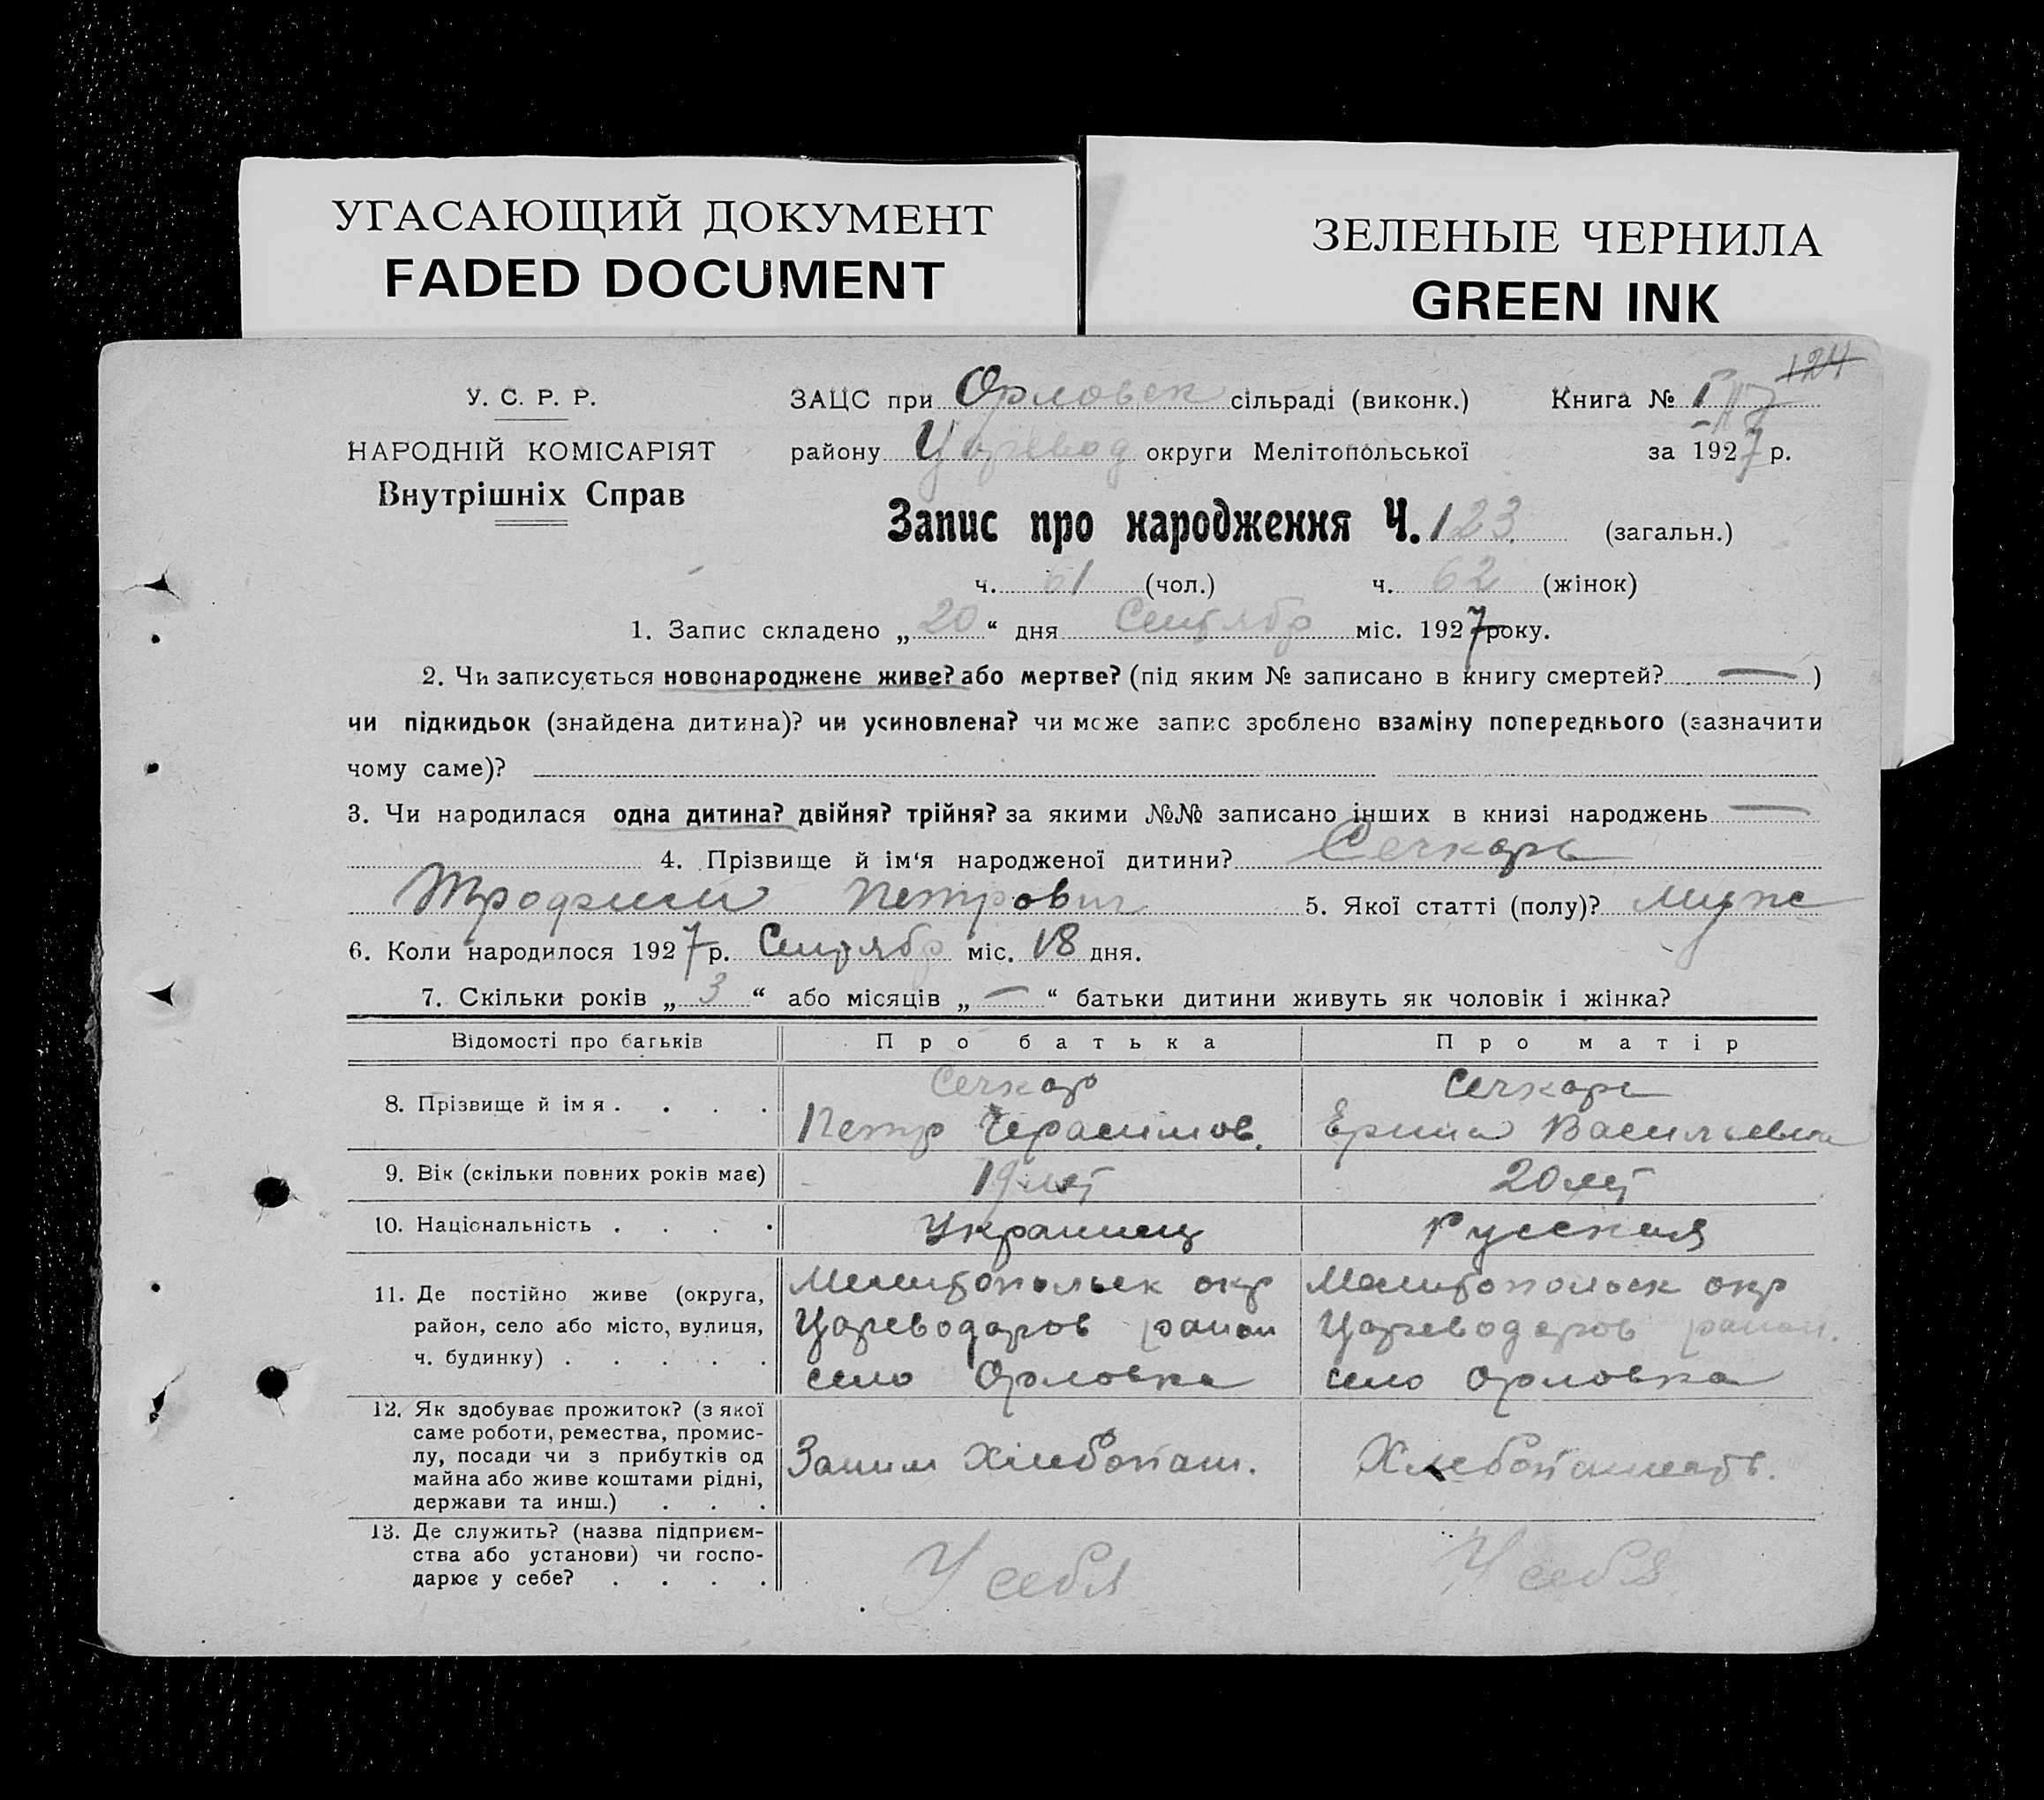 УГАСАЮЩИЙ ДОКУМЕНТ
FADED DOCUMENT
ЗЕЛЕНЫЕ ЧЕРНИЛА
GREEN INK
124
У. С. Р. Р.
НАРОДНІЙ КОМІСАРІЯТ
Внутрішніх Справ
ЗАЦС при Орловск сільраді (виконк.) Книга № I
району Царевод округи Мелітопольської за 1927 р.
Запис про народження Ч. 123 (загальн.)
ч. 61 (чол.) ч. 62 (жінок)
1. Запис складено „20“ дня Сентябр міс. 1927 року.
2. Чи записується новонароджене живе? або мертве? (під яким № записано в книгу смертей? — )
чи підкидьок (знайдена дитина)? чи усиновлена? чи може запис зроблено взаміну попереднього (зазначити
чому саме)?
3. Чи народилася одна дитина? двійня? трійня? за якими №№ записано інших в книзі народжень —
4. Прізвище й ім‘я народженої дитини? Сечкарь
Трофим Петрович 5. Якої статті (полу)? Муже
6. Коли народилося 1927 р. Сентябр міс. 18 дня.
7. Скільки років „3“ або місяців „—“ батьки дитини живуть як чоловік і жінка?
Відомості про батьків Про батька Про матір
8. Прізвище й імя . . . . Сечкар Сечкарь
Петр Герасимов. Ерина Васильевна
9. Вік (скільки повних років має) 19 лет 20 лет
10. Національність . . . . Украинец Русская
11. Де постійно живе (округа, район, село або місто, вулиця, ч. будинку) . . . . .
Мелитопольск окр Мелитопольск окр
Цареводаров район Цареводаров район.
село Орловка село Орловка
12. Як здобуває прожиток? (з якої
саме роботи, ремества, промис-
лу, посади чи з прибутків од
майна або живе коштами рідні,
держави та инш.) . . .
Заним Хлебопаш. Хлебопашеств.
13. Де служить? (назва підприєм-
ства або установи) чи госпо-
дарює у себе? . . . .
У себя У себя